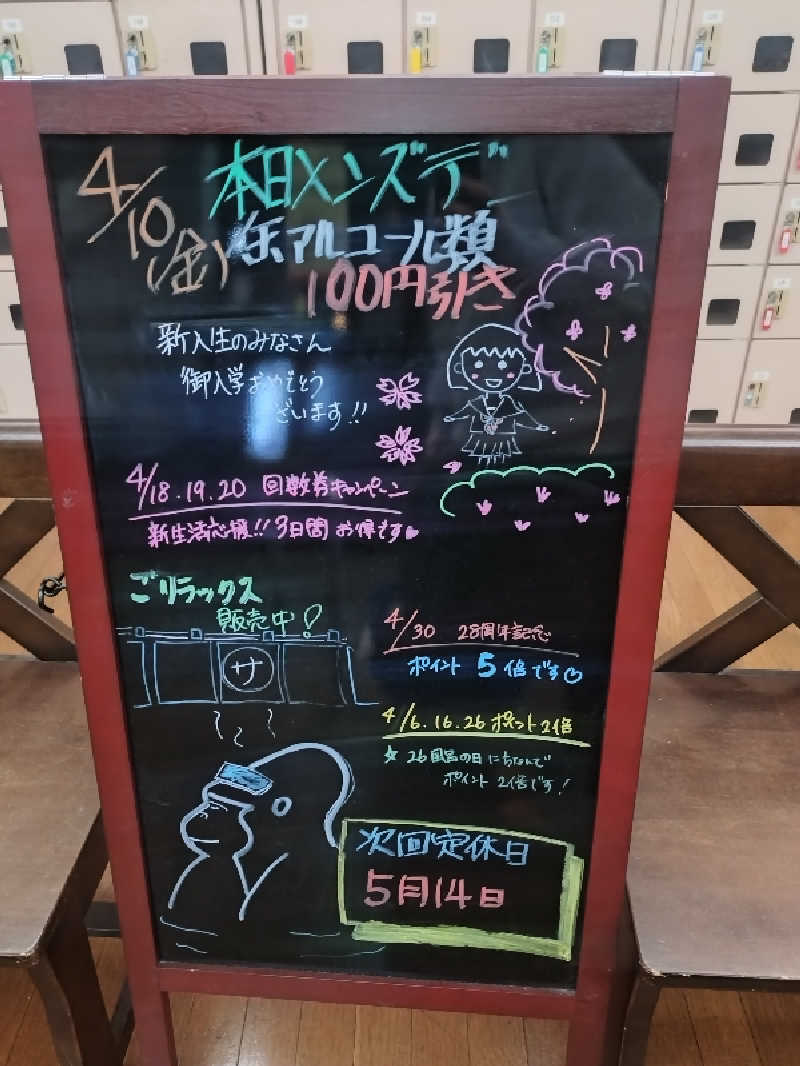 4/10(金)
本日メンズデー
缶アルコール類
100円引き
新入生のみなさん
御入学おめでとう
ございます!!
4/18.19.20 回数券キャンペーン
新生活応援!! 3日間 お得です♥
ごリラックス
販売中!
サ
4/30 28周年記念
ポイント 5倍です♡
4/6.16.26 ポイント2倍
☆ 26風呂の日にちなんで
ポイント 2倍です!
次回定休日
5月14日